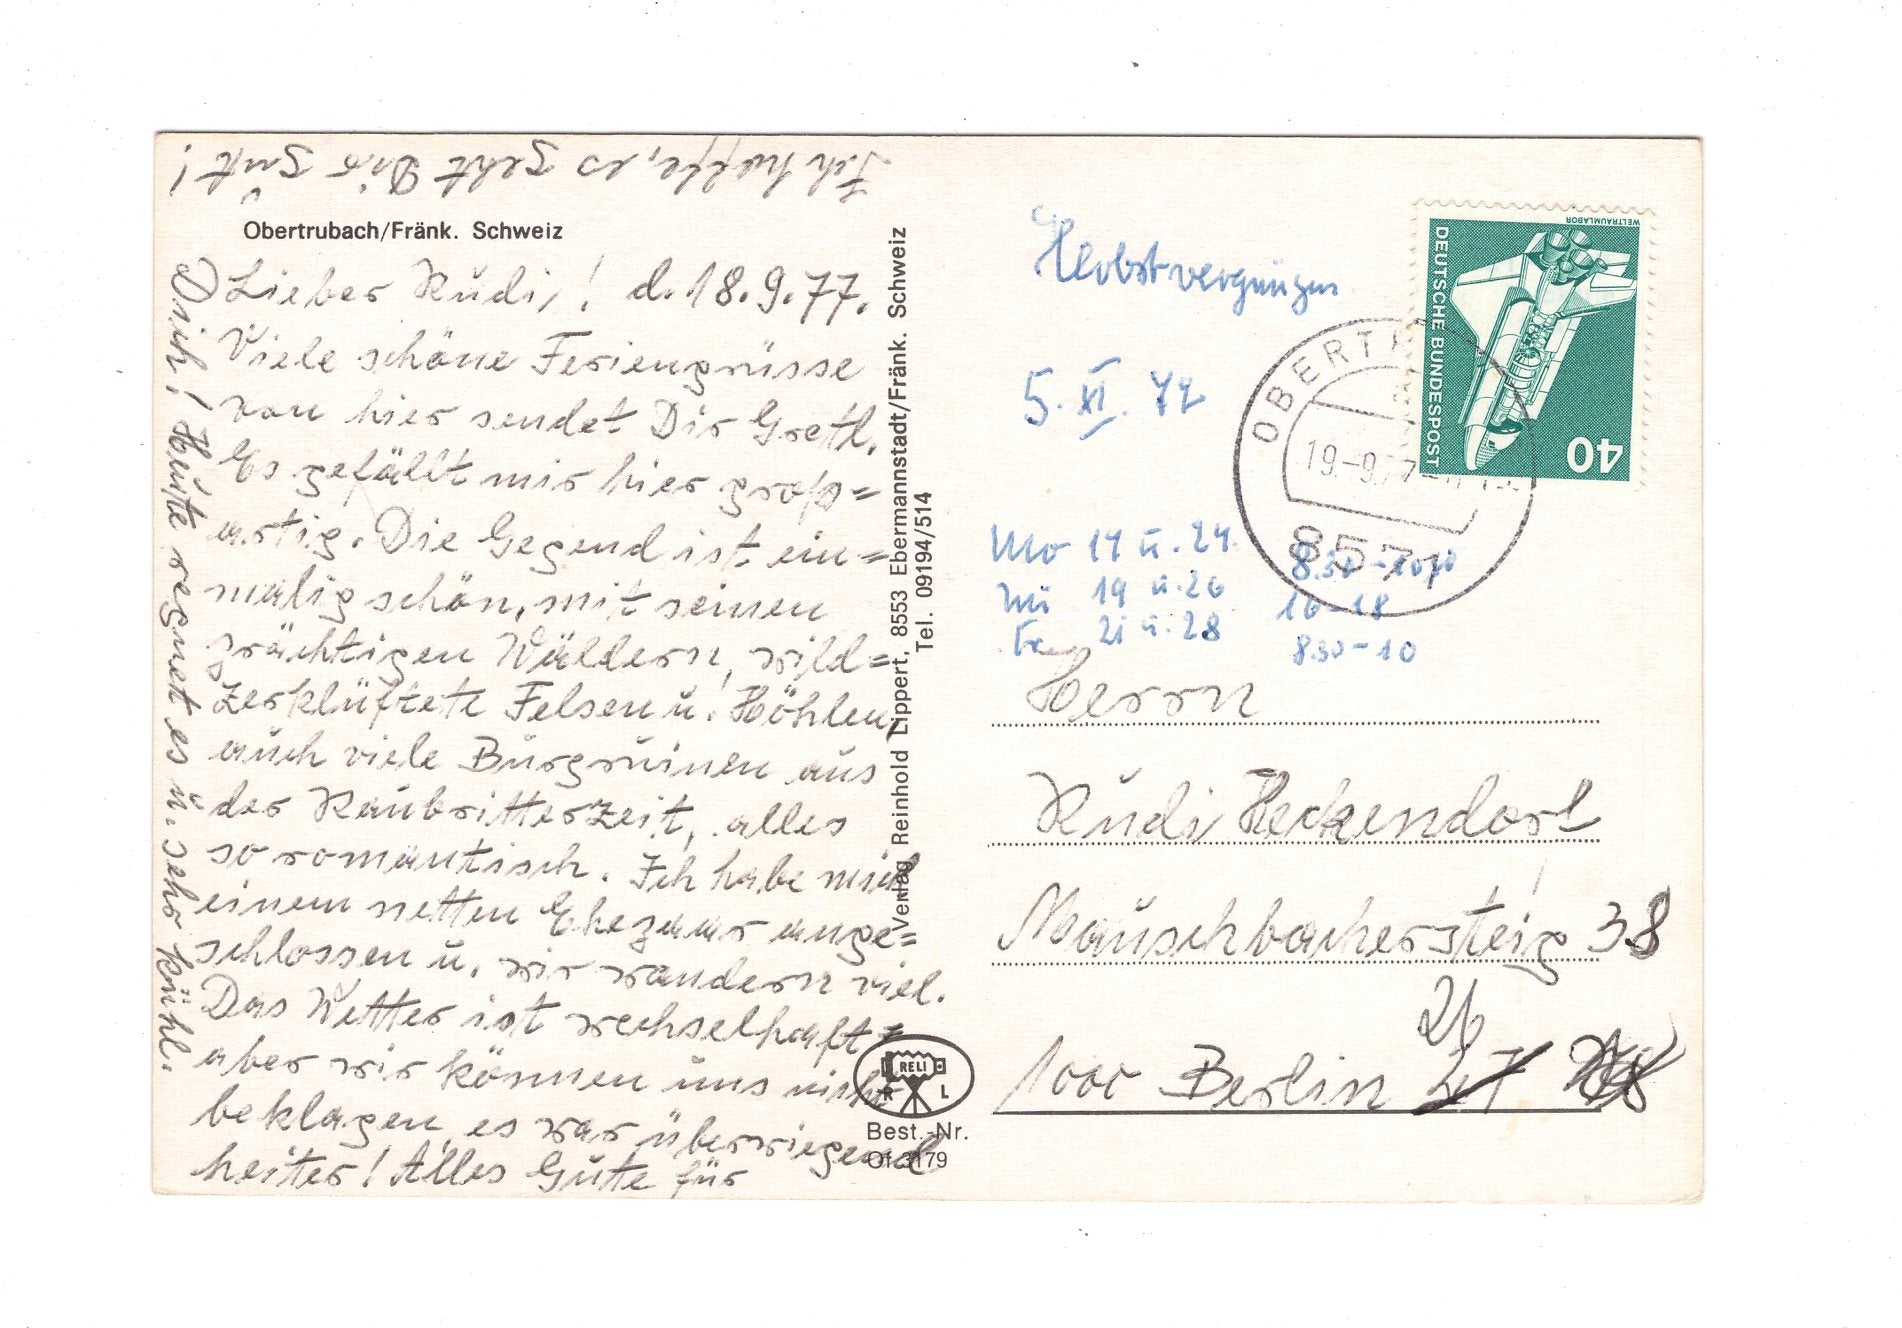 Ich hoffe, es geht Dir gut!
Obertrubach/Fränk. Schweiz
Lieber Rudi,! d. 18.9.77.
Viele schöne Feriengrüsse
von hier sendet Dir Gretl.
Es gefällt mir hier groß=
artig. Die Gegend ist ein=
malig schön, mit seinen
prächtigen Wäldern, wild=
zerklüftete Felsen u. Höhlen,
auch viele Burgruinen aus
der Raubritterzeit, alles
so romantisch. Ich habe mich
einem netten Ehepaar ange=
schlossen u. wir wandern viel.
Das Wetter ist wechselhaft=
aber wir können uns nicht
beklagen es war überwiegend
heiter! Alles Gute für
Dich! Heute regnet es u. sehr kühl.
Verlag Reinhold Lippert, 8553 Ebermannstadt/Fränk. Schweiz
Tel. 09194/514
RELI
R L
Best.-Nr.
Of 3179
WELTRAUMLABOR
DEUTSCHE BUNDESPOST
40
19.-9.77
8571
Herbstvergnügen
5. XI. 77
Mo 17 u. 24. 8.30-10
Mi 19 u. 26 16-18
Fr 21 u. 28 8.30-10
Herrn
Rudi Heckendorf
Mauschbachersteig 38
26
1000 Berlin